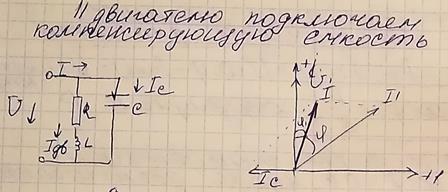 || двигателю подключаем
компенсирующую емкость
I →
+j
U
I
I'
↓ Ic
U ↓
R
C
φ'
φ
Iдв
L
Ic
+1